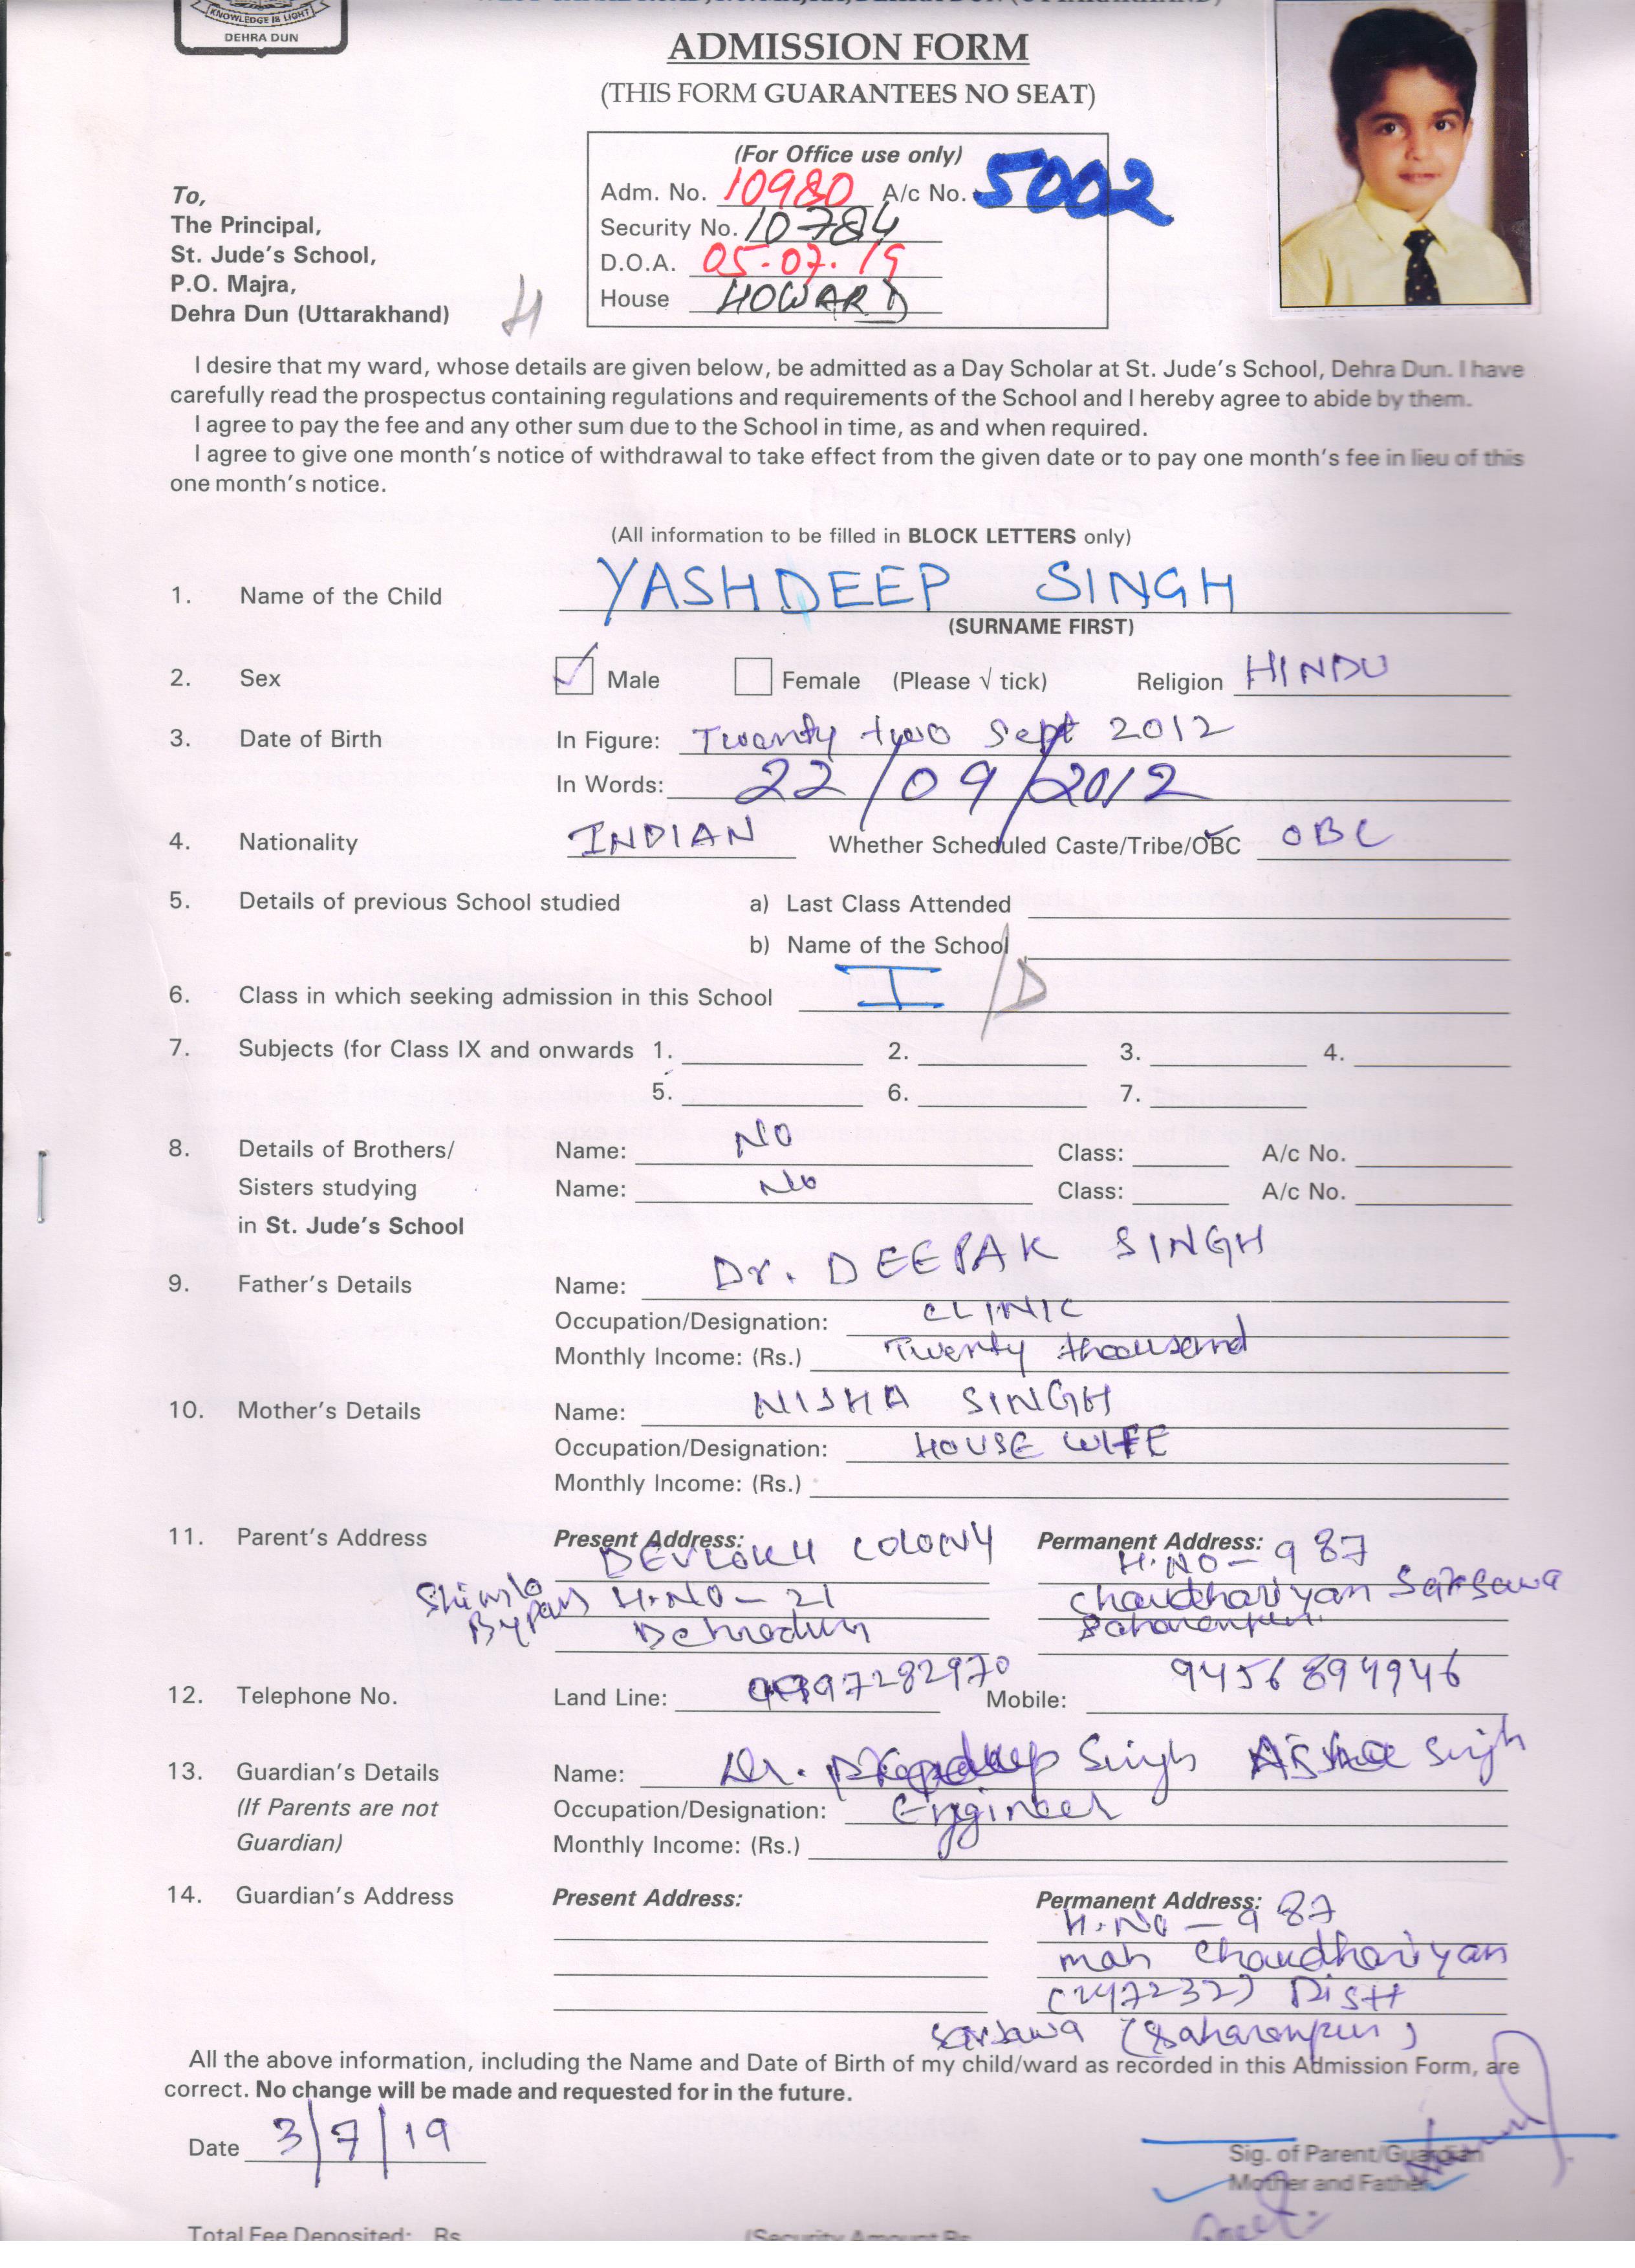 KNOWLEDGE IS LIGHT
DEHRA DUN
ADMISSION FORM
(THIS FORM GUARANTEES NO SEAT)
(For Office use only)
Adm. No. 10980 A/c No. 5002
Security No. 10784
D.O.A. 05.07.19
House HOWARD
To,
The Principal,
St. Jude's School,
P.O. Majra,
Dehra Dun (Uttarakhand)
H
I desire that my ward, whose details are given below, be admitted as a Day Scholar at St. Jude's School, Dehra Dun. I have
carefully read the prospectus containing regulations and requirements of the School and I hereby agree to abide by them.
I agree to pay the fee and any other sum due to the School in time, as and when required.
I agree to give one month's notice of withdrawal to take effect from the given date or to pay one month's fee in lieu of this
one month's notice.
(All information to be filled in BLOCK LETTERS only)
1. Name of the Child YASHDEEP SINGH
(SURNAME FIRST)
2. Sex Male Female (Please √ tick) Religion HINDU
3. Date of Birth In Figure: Twenty two Sept 2012
In Words: 22/09/2012
4. Nationality INDIAN Whether Scheduled Caste/Tribe/OBC OBC
5. Details of previous School studied a) Last Class Attended
b) Name of the School
6. Class in which seeking admission in this School I /D
7. Subjects (for Class IX and onwards 1. 2. 3. 4.
5. 6. 7.
8. Details of Brothers/ Name: NO Class: A/c No.
Sisters studying Name: No Class: A/c No.
in St. Jude's School
9. Father's Details Name: Dr. DEEPAK SINGH
Occupation/Designation: CLINIC
Monthly Income: (Rs.) Twenty thousend
10. Mother's Details Name: NISHA SINGH
Occupation/Designation: HOUSE WIFE
Monthly Income: (Rs.)
11. Parent's Address Present Address: Permanent Address:
DEVLOKH COLONY H.NO - 987
Shimla Bypass H.NO - 21 Chaudhariyan Sarsawa
Dehradun Saharanpur
12. Telephone No. Land Line: 97282970 Mobile: 9456894946
13. Guardian's Details Name: Dr. Singh Singh
(If Parents are not Occupation/Designation: Engineer
Guardian) Monthly Income: (Rs.)
14. Guardian's Address Present Address: Permanent Address:
H.No - 987
moh Chaudhariyan
(247232) Distt
Sarsawa (Saharanpur)
All the above information, including the Name and Date of Birth of my child/ward as recorded in this Admission Form, are
correct. No change will be made and requested for in the future.
Date 3/7/19
Sig. of Parent/Guardian
Mother and Father
Total Fee Deposited: Rs. (Security Amount Rs.